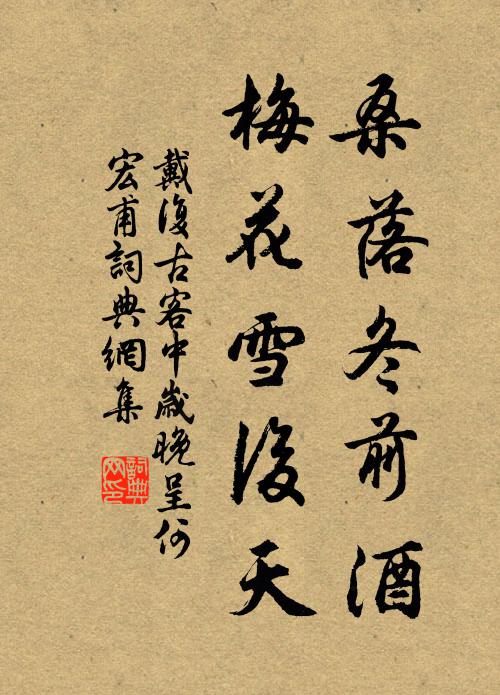 桑落冬前酒
梅花雪後天
戴復古客中歲晚呈何
宏甫詞典網集
詞典網印